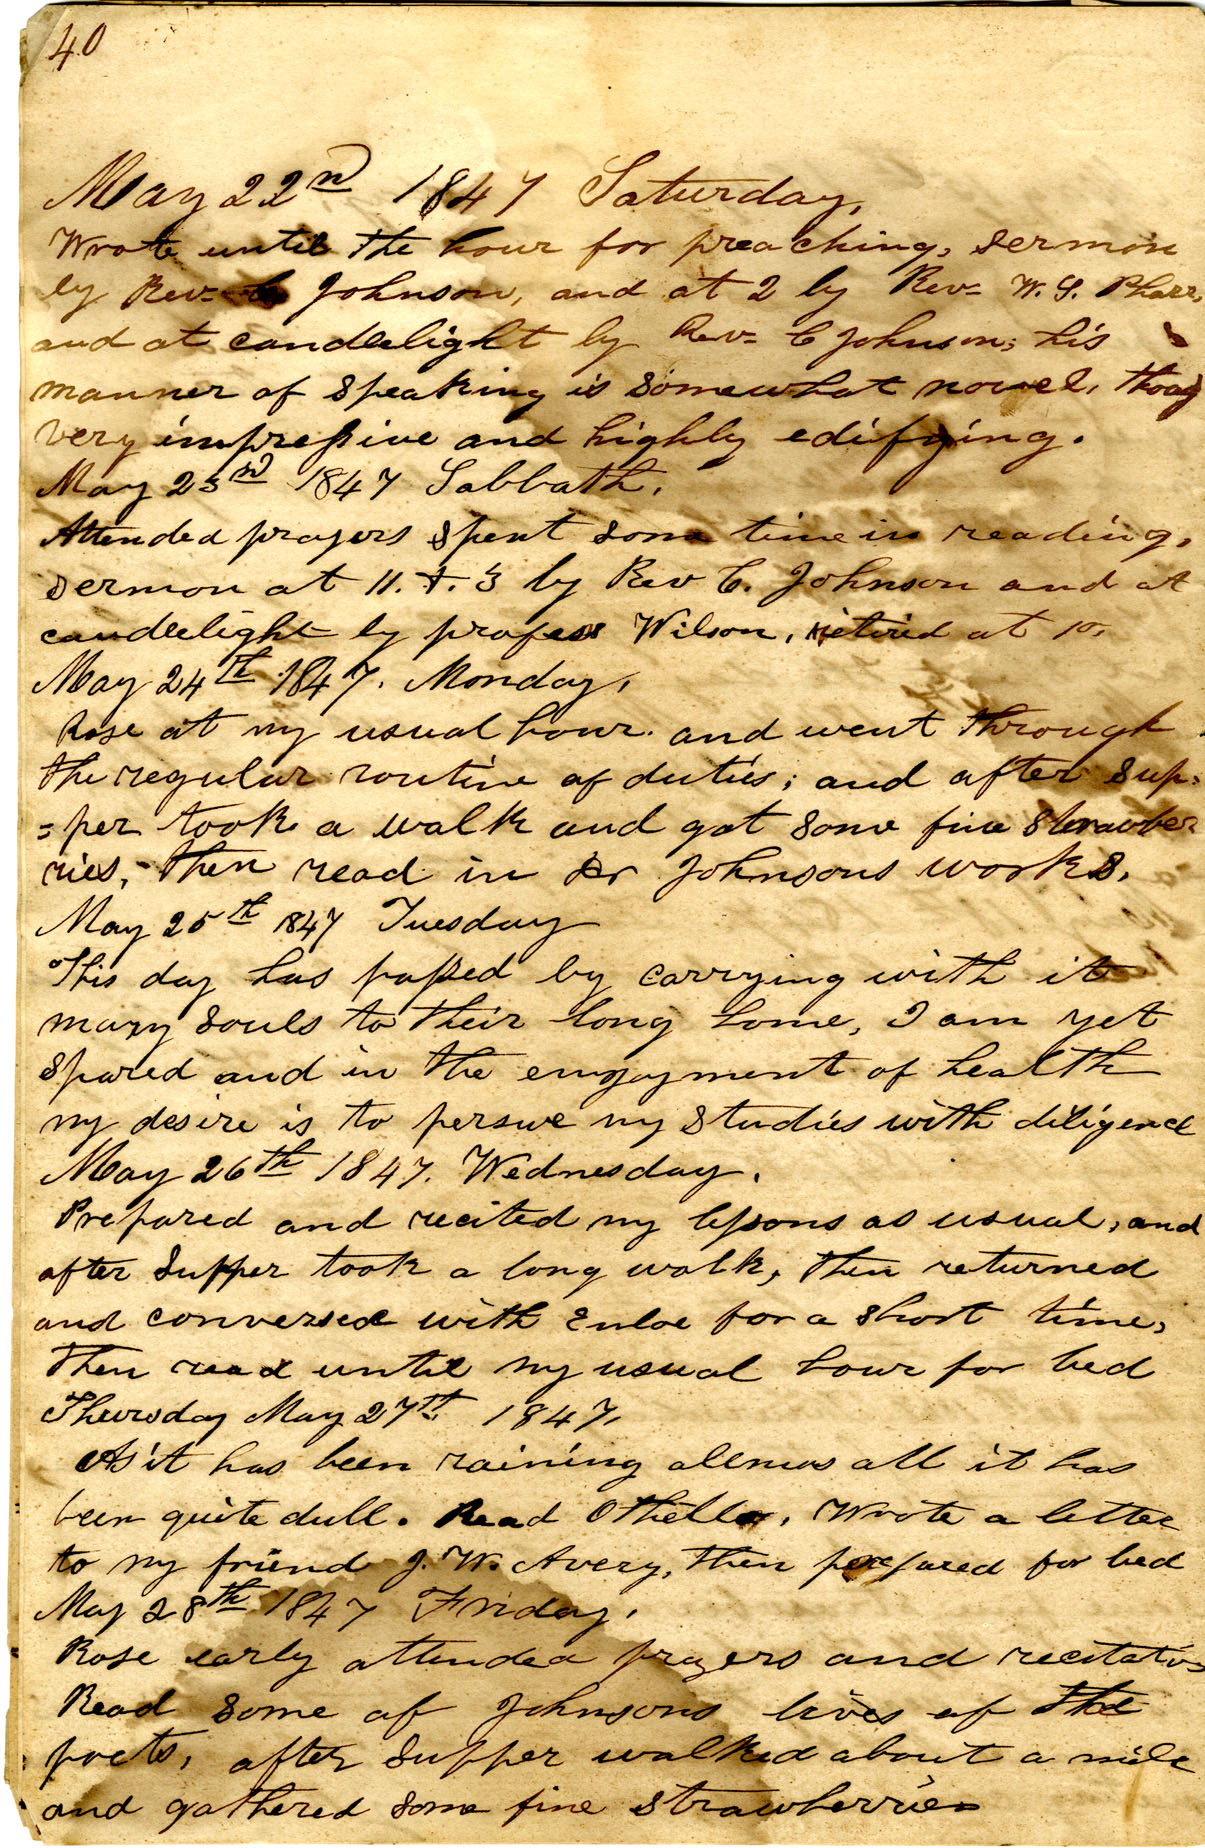 40
May 22nd 1847 Saturday,
Wrote until the hour for preaching, sermon
by Rev= Johnson, and at 2 by Rev= W. S. Pharr,
and at candlelight by Rev= C Johnson; his
manner of speaking is somewhat novel, though
very impressive and highly edifying.
May 23rd 1847 Sabbath.
Attended prayers spent some time in reading,
sermon at 11. & 3 by Rev C. Johnson and at
candlelight by profess Wilson, retired at 10.
May 24th 1847. Monday,
Rose at my usual hour. and went through
the regular routine of duties; and after sup=
=per took a walk and got some fine strawber
ries, then read in Dr Johnsons works.
May 25th 1847 Tuesday
This day has passed by carrying with it
many souls to their long home, I am yet
spared and in the enjoyment of health
my desire is to persue my studies with diligence
May 26th 1847. Wednesday.
Prepared and recited my lessons as usual, and
after supper took a long walk, then returned
and conversed with Enloe for a short time,
then read until my usual hour for bed
Thursday May 27th 1847,
As it has been raining allmos all it has
been quite dull. Read Othello, Wrote a letter
to my friend J. W. Avery, then prepared for bed
May 28th 1847 Friday,
Rose early attended prayers and recitation
Read some of Johnsons lives of the
poets, after supper walked about a mile
and gathered some fine strawberries